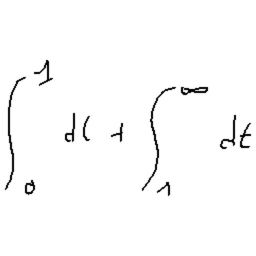 ∫₀¹ dt + ∫₁^∞ dt